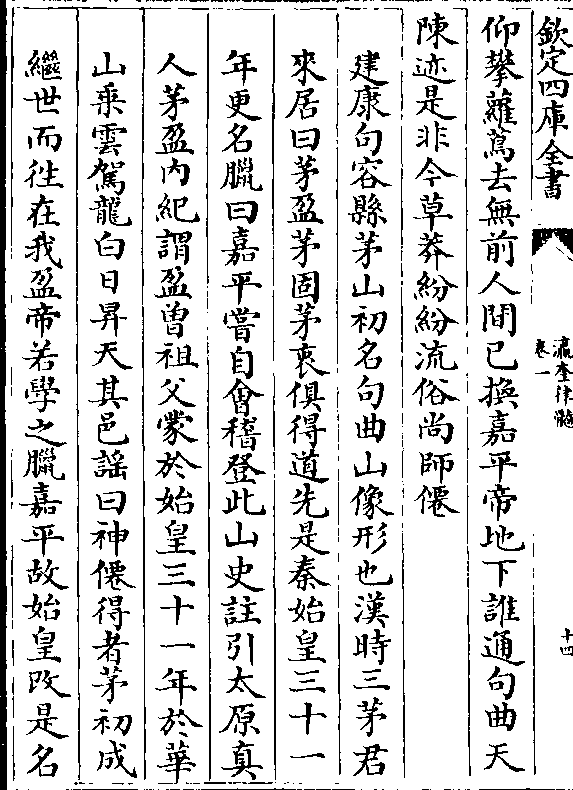 欽定四庫全書
瀛奎律髓
卷一
十四
仰攀蘿蔦去無前人間已換嘉平帝地下誰通句曲天
陳迹是非今草莽紛紛流俗尚師僊
建康句容縣茅山初名句曲山像形也漢時三茅君
來居曰茅盈茅固茅衷俱得道先是秦始皇三十一
年更名臘曰嘉平嘗自會稽登此山史註引太原真
人茅盈内紀謂盈曽祖父濛於始皇三十一年於華
山乗雲駕龍白日昇天其邑謡曰神僊得者茅初成
繼世而徃在我盈帝若學之臘嘉平故始皇改是名